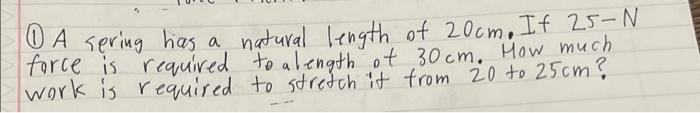 ① A spring has a natural length of 20cm. If 25-N
force is required to a length of 30cm. How much
work is required to stretch it from 20 to 25cm?